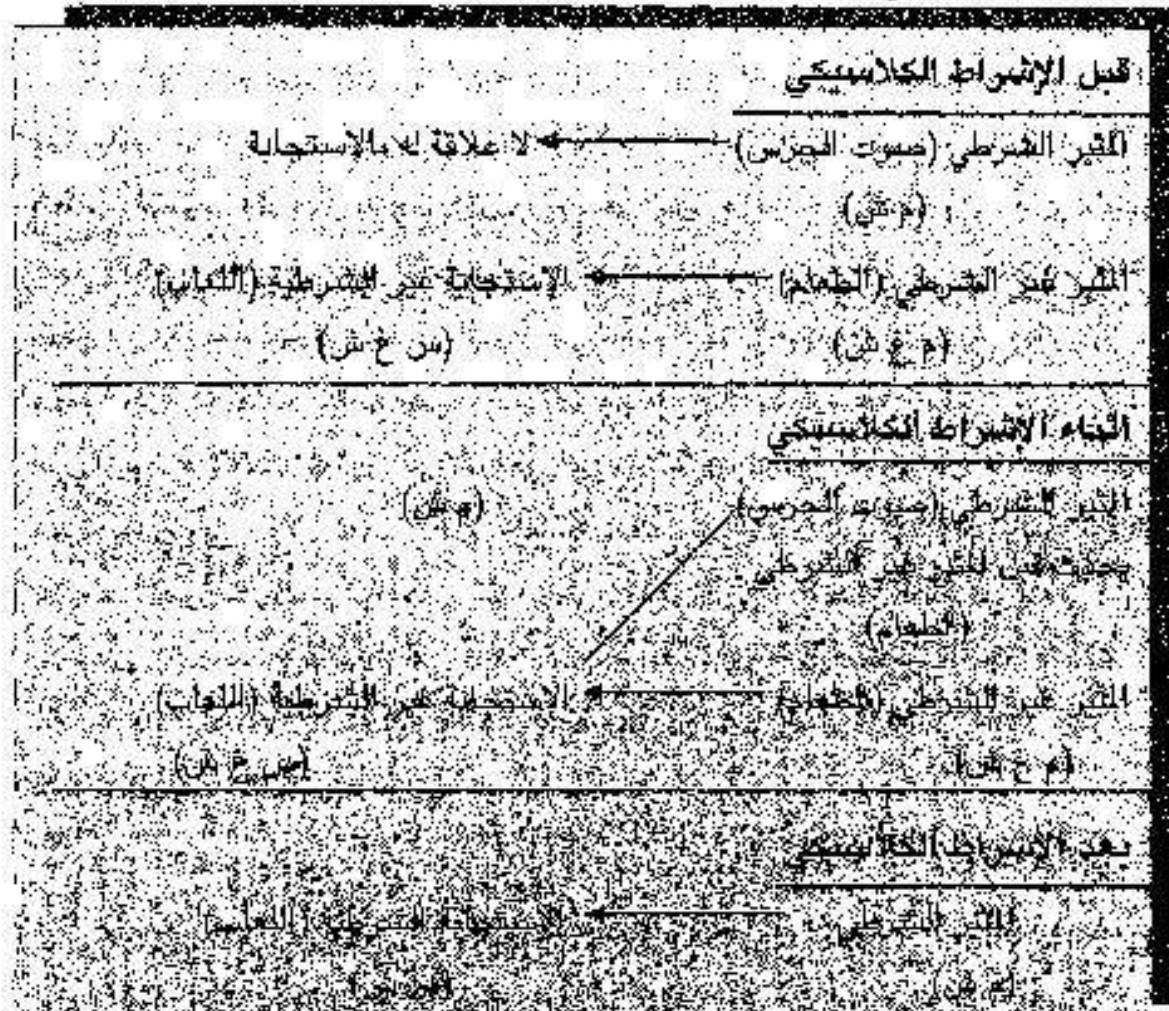 قبل الإشراط الكلاسيكي
المثير الشرطي (صوت الجرس) لا علاقة له بالاستجابة
(م ش)
المثير غير الشرطي (الطعام) الاستجابة غير الشرطية (اللعاب)
(م غ ش) (س غ ش)
أثناء الإشراط الكلاسيكي
المثير الشرطي (صوت الجرس) (م ش)
يحدث قبل المثير غير الشرطي
(الطعام)
المثير غير الشرطي (الطعام) الاستجابة غير الشرطية (اللعاب)
(م غ ش) (س غ ش)
بعد الإشراط الكلاسيكي
المثير الشرطي الاستجابة الشرطية (اللعاب)
(م ش) (س ش)